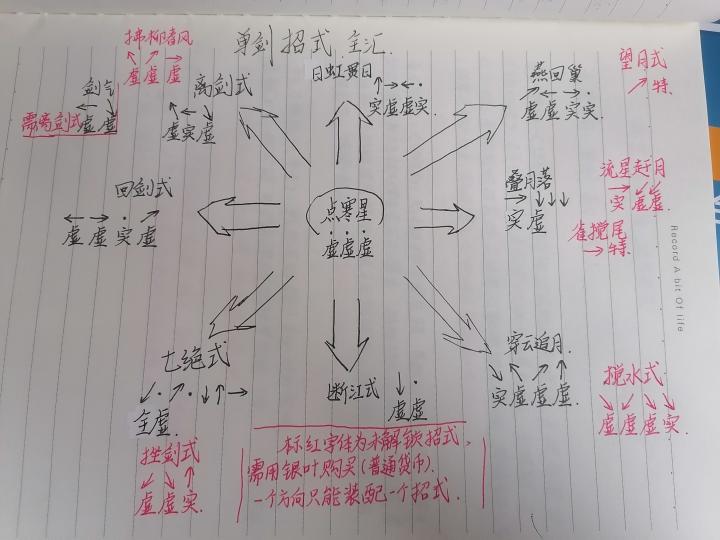 单剑招式主汇.
拂柳春风
↖ ↗ →
虚虚虚
剑气
← ↘
虚虚
需离剑式
离剑式
↖ ← ↘
虚实虚
白虹贯日
↑ → ← ·
实虚虚实.
燕回巢
↗ ← → ·
虚虚实实
望月式
↗ 特.
回剑式
← → · ↗
虚虚实虚
点寒星
· · ·
虚虚虚
叠月落
→ ↓↓↓
实虚
流星赶月
→ ↙ ↙
实虚虚.
雀搅尾
→ 特.
Record A bit Of life
七绝式
↙ · ↗ · ↓ ↑ →
全虚.
断江式
↓ ·
虚虚
穿云追月.
↘ ↖ ↗ ↑
实虚虚虚.
搅水式
↘ ↙ ↘ ↘
虚虚虚实.
挫剑式
↙ ↘ ↑
虚虚实.
标红字体为未解锁招式,
需用银叶购买(普通货币).
一个方向只能装配一个招式.